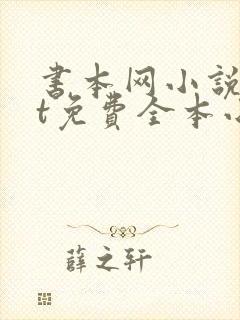 书本网小说
t免费全本小
薛之轩